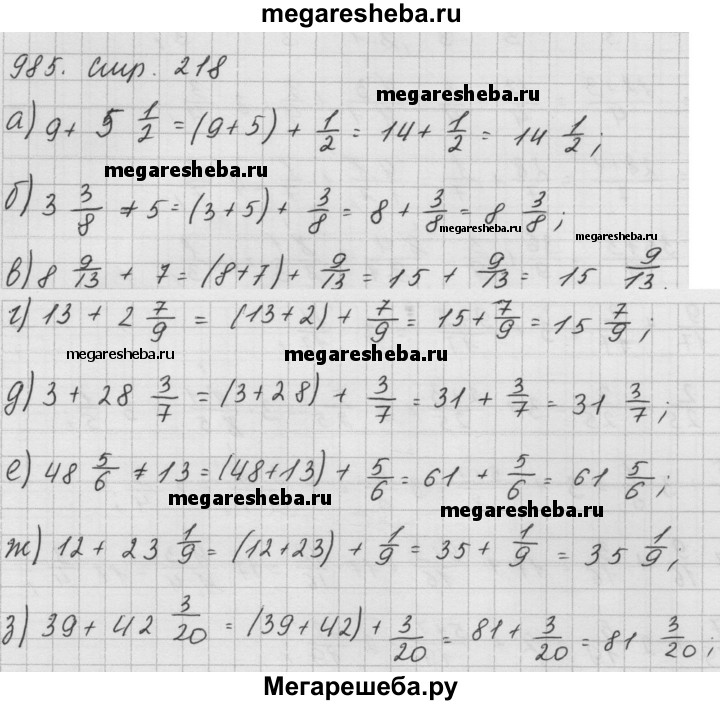 megaresheba.ru
985. стр. 218
megaresheba.ru
а) 9 + 5 1/2 = (9+5) + 1/2 = 14 + 1/2 = 14 1/2;
megaresheba.ru
б) 3 3/8 + 5 = (3+5) + 3/8 = 8 + 3/8 = 8 3/8;
megaresheba.ru
megaresheba.ru
в) 8 9/13 + 7 = (8+7) + 9/13 = 15 + 9/13 = 15 9/13.
г) 13 + 2 7/9 = (13+2) + 7/9 = 15 + 7/9 = 15 7/9;
megaresheba.ru
megaresheba.ru
д) 3 + 28 3/7 = (3+28) + 3/7 = 31 + 3/7 = 31 3/7;
е) 48 5/6 + 13 = (48+13) + 5/6 = 61 + 5/6 = 61 5/6;
megaresheba.ru
megaresheba.ru
ж) 12 + 23 1/9 = (12+23) + 1/9 = 35 + 1/9 = 35 1/9;
з) 39 + 42 3/20 = (39+42) + 3/20 = 81 + 3/20 = 81 3/20;
Мегарешеба.ру